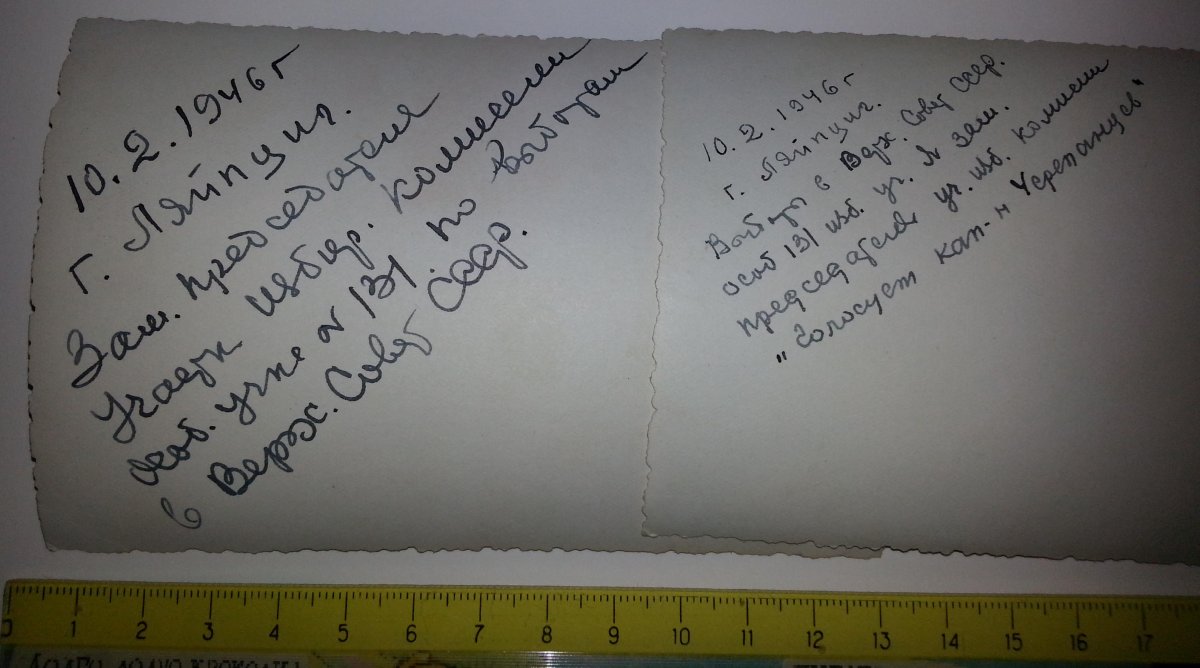 10.2.1946 г
г. Ляйпциг.
Зам. председателя
участк избир. комиссии
особ. уч-ка № 131 по выборам
в Верх. Совет СССР.
10.2.1946 г
г. Ляйпциг.
Выборы в Верх. Совет СССР.
особ 131 изб. уч. Я зам.
председателя уч. изб. комиссии
"Голосует кап-н Черепанцев"
0 1 2 3 4 5 6 7 8 9 10 11 12 13 14 15 16 17